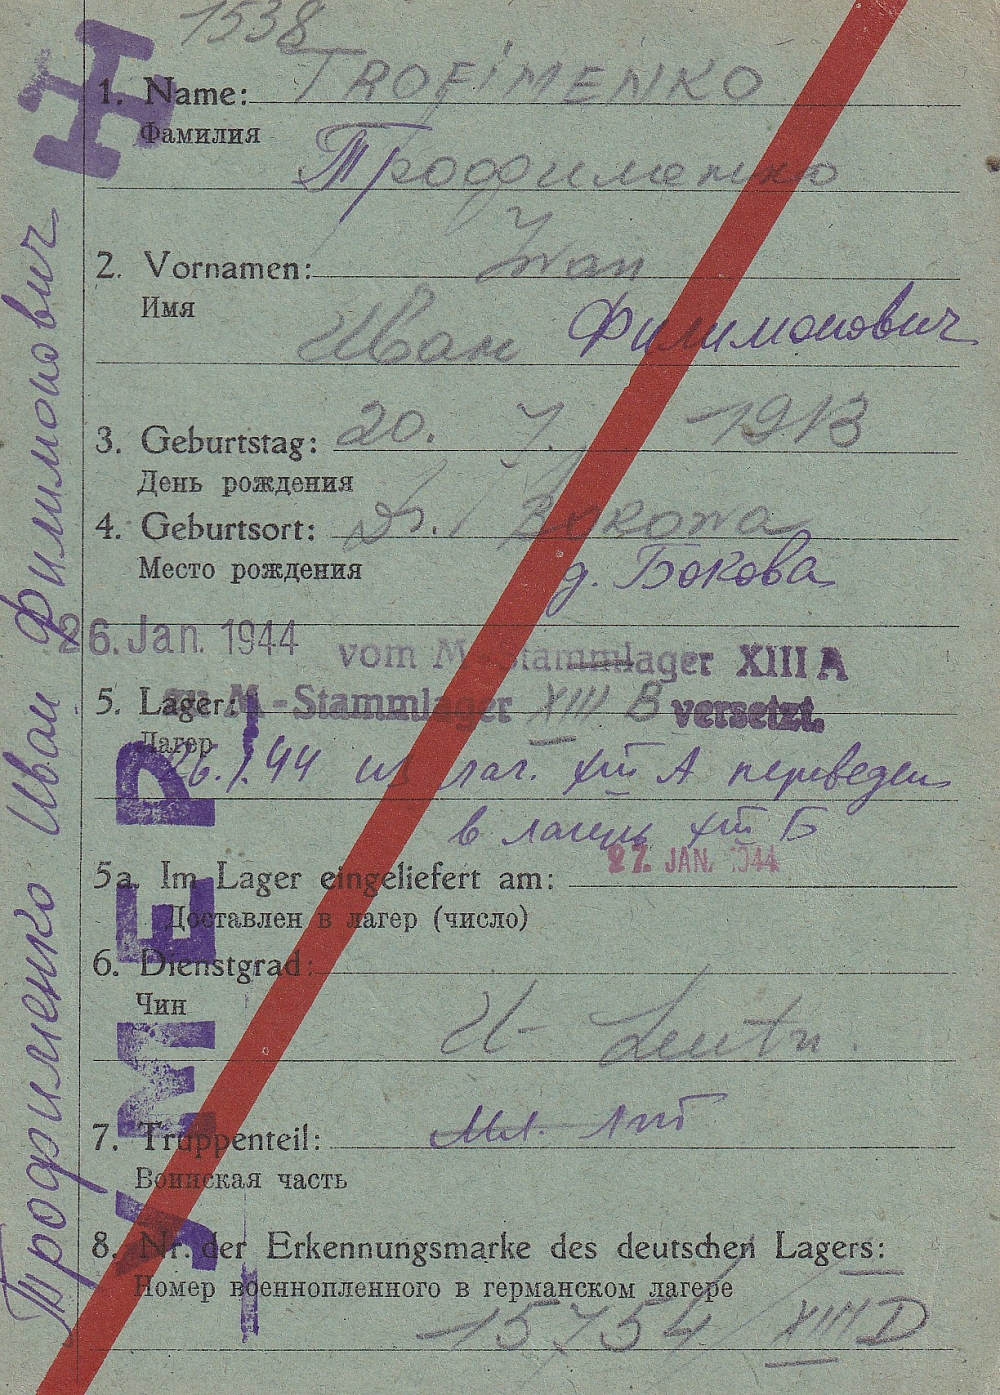 1538
1. Name: TROFiMENKO
Фамилия
Трофименко
2. Vornamen: Iwan
Имя
Иван Филимонович
3. Geburtstag: 20. 7. 1913
День рождения
4. Geburtsort: Dr. Bokowa
Место рождения
д. Бокова
26. Jan. 1944 vom M-Stammlager XIII A
5. Lager: zu M-Stammlager XIII B versetzt.
Лагер
26.1.44 из лаг. XIII А переведен
в лагерь XIII Б
27. JAN. 1944
5a. Im Lager eingeliefert am:
Доставлен в лагер (число)
6. Dienstgrad:
Чин
U- Leutn.
Мл. лит
7. Truppenteil:
Воинская часть
8. Nr. der Erkennungsmarke des deutschen Lagers:
Номер военнопленного в германском лагере
15754/XIII D
Трофименко Иван Филимонович
H